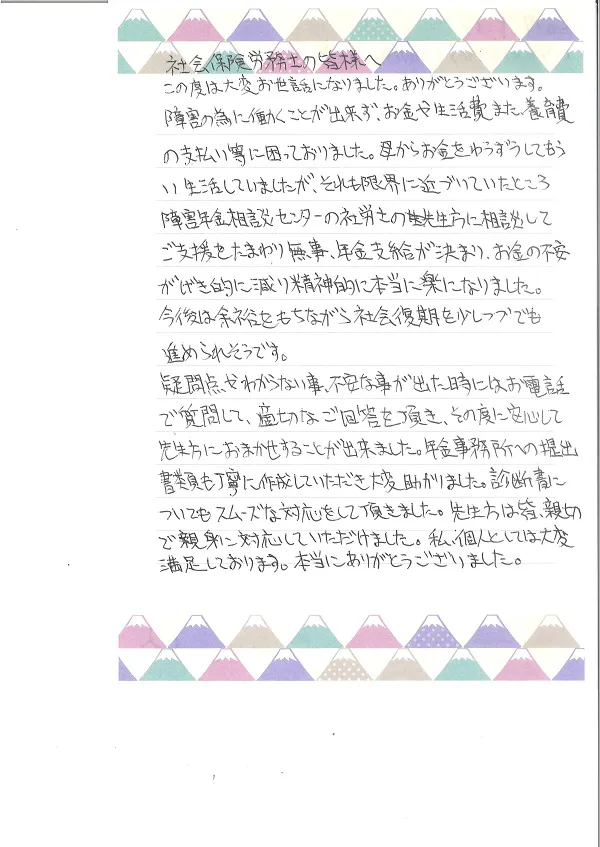 社会保険労務士の皆様へ
この度は大変お世話になりました。ありがとうございます。
障害の為に働くことが出来ず、お金や生活費また、養育費
の支払い等に困っておりました。母からお金をゆうずうしてもら
い生活していましたが、それも限界に近づいていたところ
障害年金相談センターの社労士の先生方に相談して
ご支援をたまわり無事、年金支給が決まり、お金の不安
がげき的に減り精神的に本当に楽になりました。
今後は余裕をもちながら社会復期を少しづつでも
進められそうです。
疑問点やわからない事、不安な事が出た時にはお電話
で質問して、適切なご回答を頂き、その度に安心して
先生方におまかせすることが出来ました。年金事務所への提出
書類も丁寧に作成していただき大変助かりました。診断書に
ついてもスムーズな対応をして頂きました。先生方は皆、親切
で親身に対応していただけました。私、個人としては大変
満足しております。本当にありがとうございました。